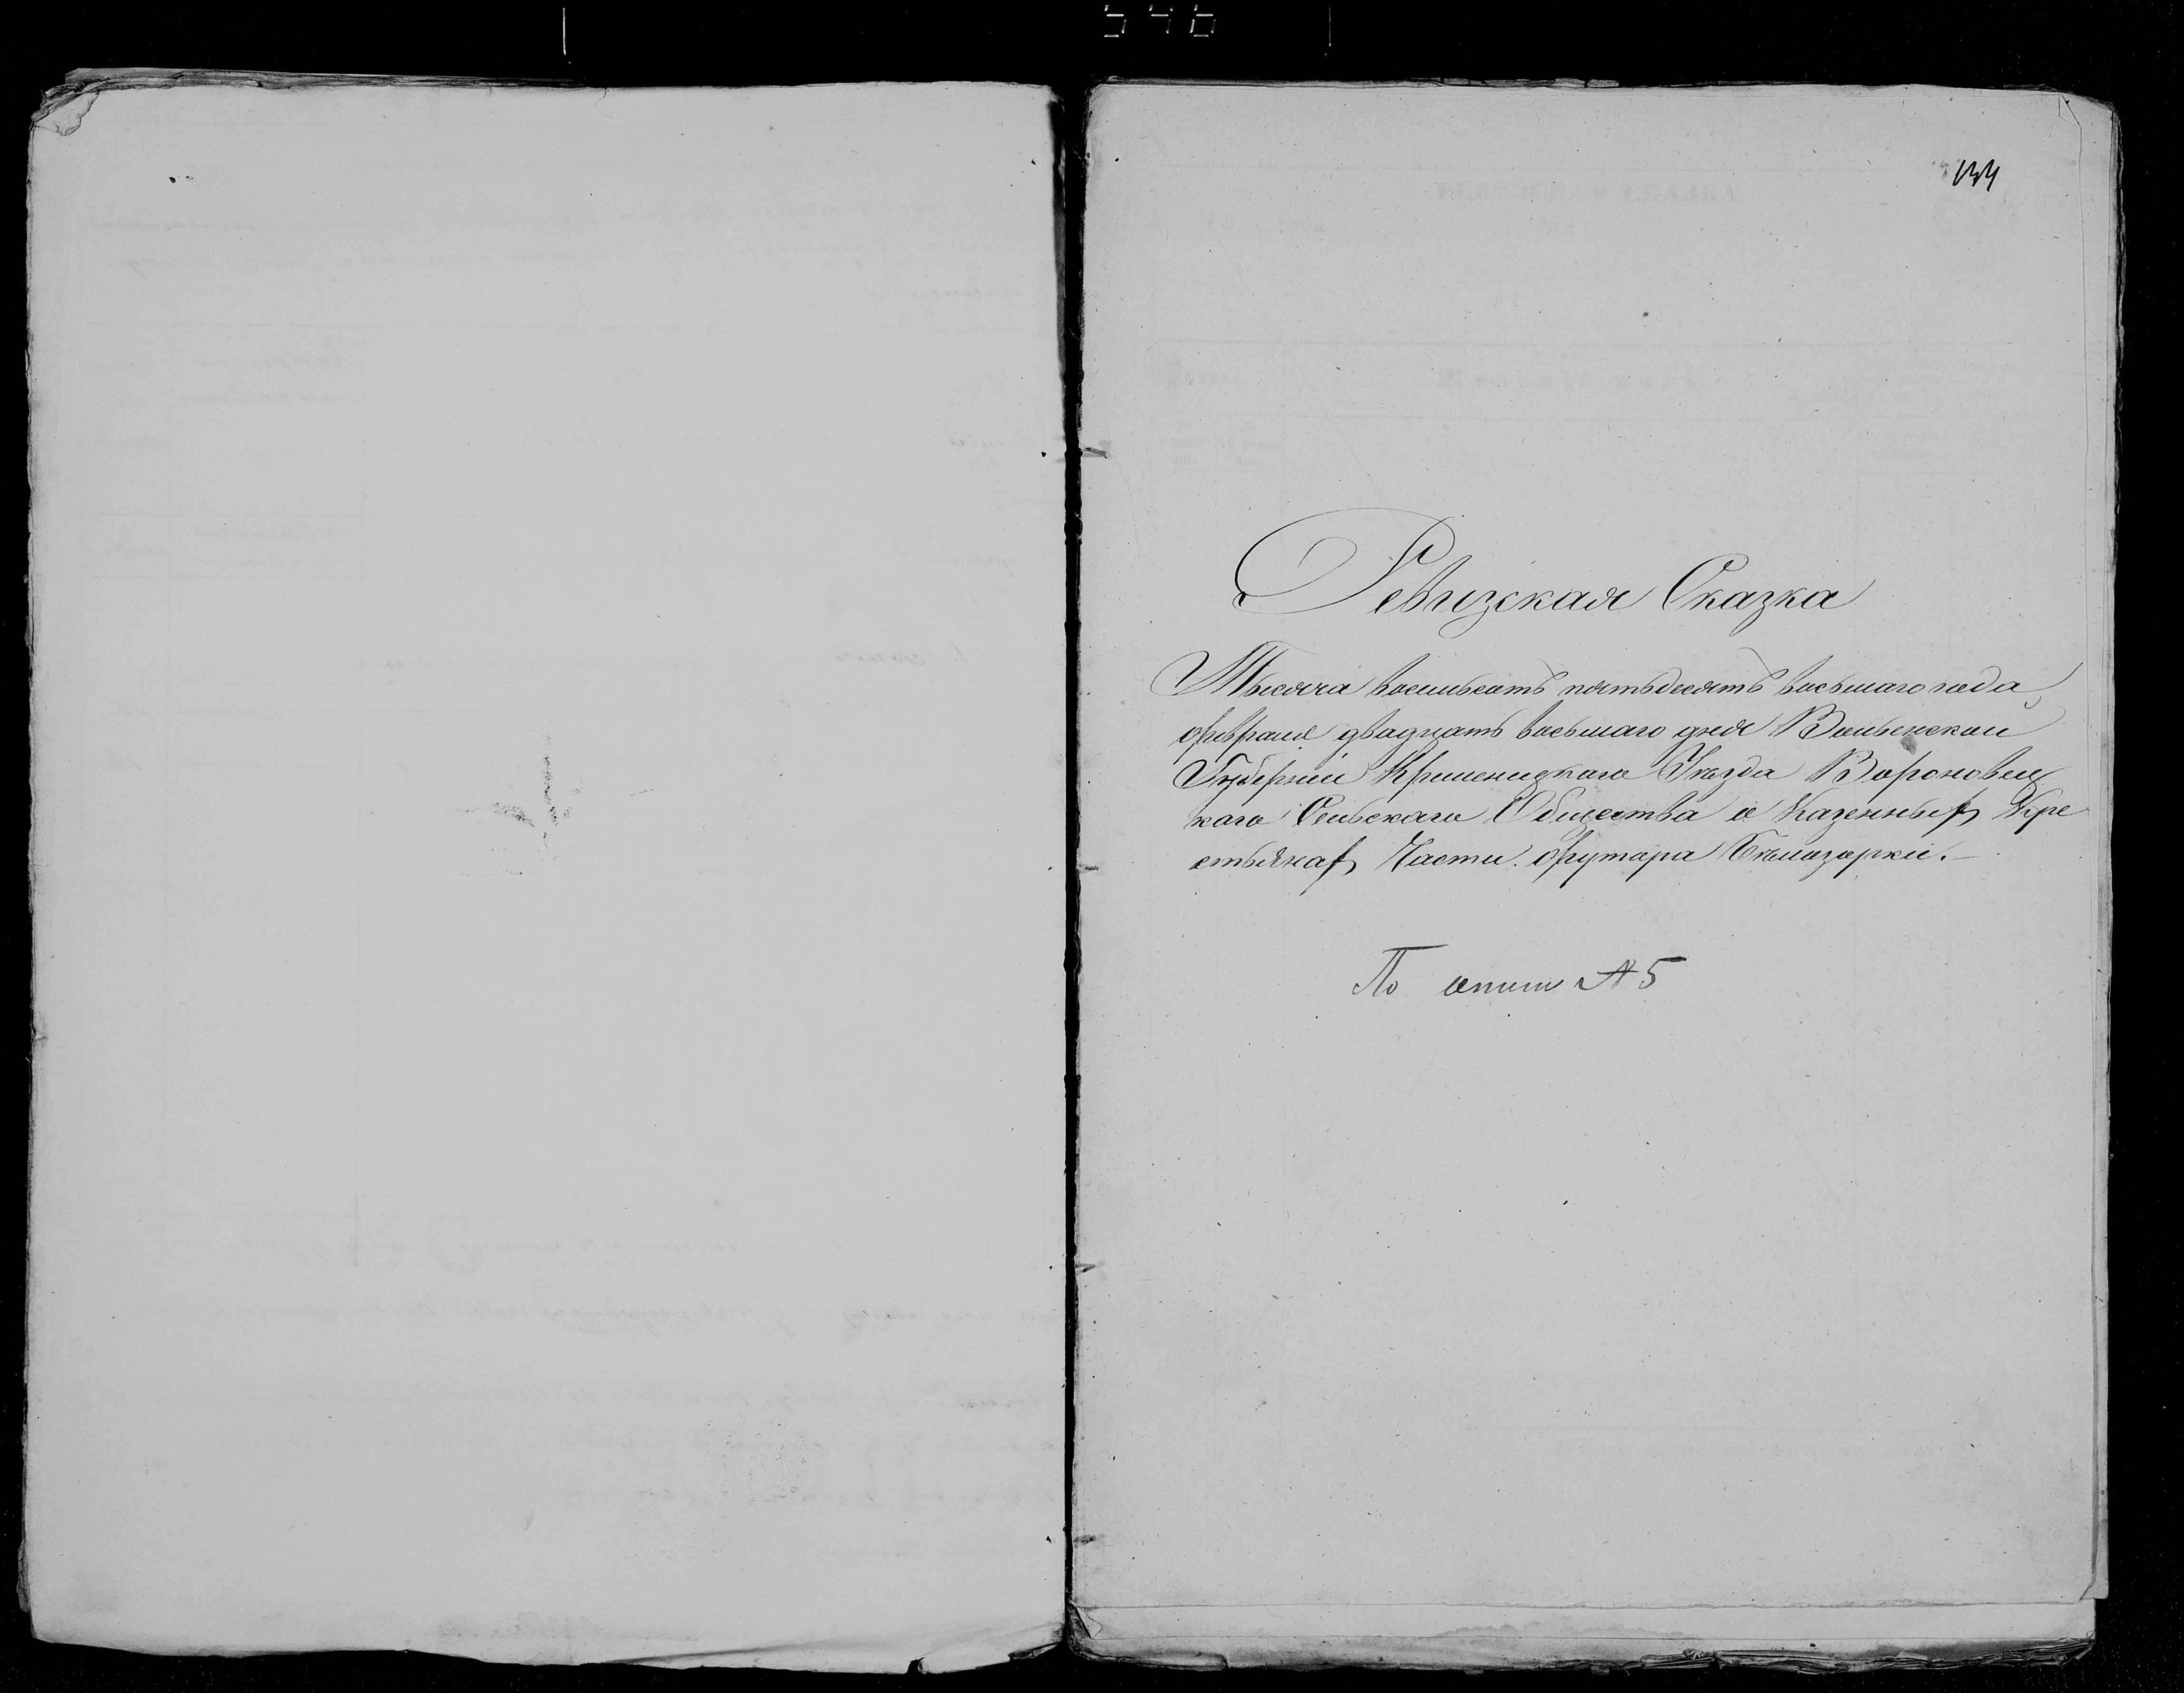 546
134
Ревизская Сказка
Тысяча восемьсотъ пятьдесятъ восьмаго года,
февраля двадцать восьмаго дня Волынской
Губерніи Кременецкаго Уѣзда Вороновец
каго Сельскаго Общества о Казенныхъ Кре
стьянахъ Части футора Бѣлозорки.
По описи № 5